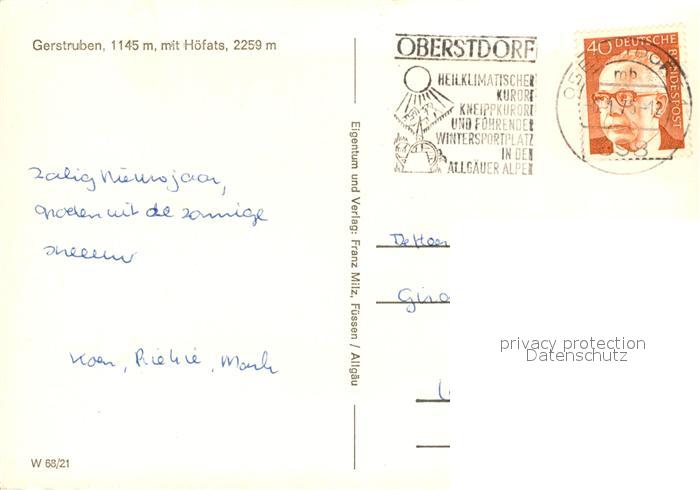 Gerstruben, 1145 m, mit Höfats, 2259 m
OBERSTDORF
HEILKLIMATISCHER
KURORT
KNEIPPKURORT
UND FÜHRENDER
WINTERSPORTPLATZ
IN DEN
ALLGÄUER ALPEN
40 DEUTSCHE
BUNDESPOST
mb
Zalig Nieuwjaar,
groeten uit de zonnige
sneeuw
Koen, Riekie, Mark
Eigentum und Verlag: Franz Milz, Füssen / Allgäu
De Heer
privacy protection
Datenschutz
W 68/21